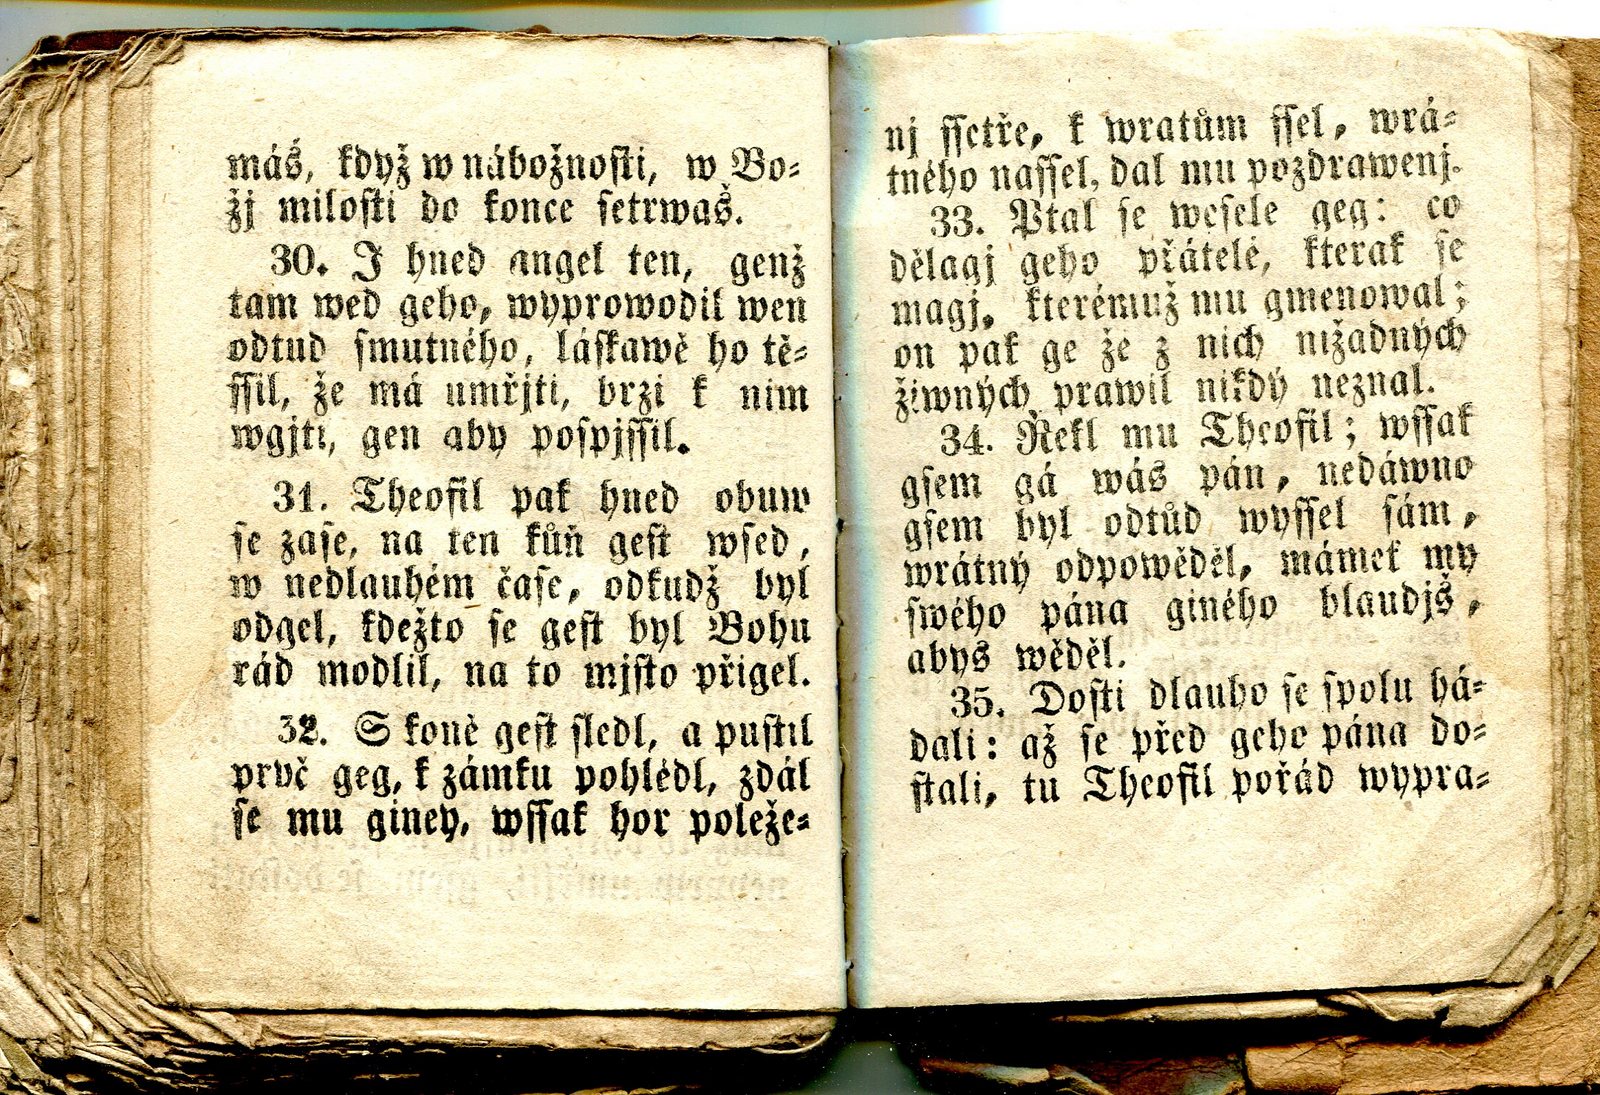 máš, když w nábožnosti, w Bo-
žj milosti do konce setrwaš.
30. I hned angel ten, genž
tam wed geho, wyprowodil wen
odtud smutného, láskawě ho tě-
ssil, že má umřjti, brzi k nim
wgjti, gen aby pospjssil.
31. Theofil pak hned obuw
se zase, na ten kůň gest wsed,
w nedlauhém čase, odkudž byl
odgel, kdežto se gest byl Bohu
rád modlil, na to mjsto přigel.
32. S koně gest sledl, a pustil
prvč geg, k zámku pohlédl, zdál
se mu giney, wssak hor poleže-
nj ssetře, k wratům ssel, wrá-
tného nassel, dal mu pozdrawenj.
33. Ptal se wesele geg: co
dělagj geho přátelé, kterak se
magj, kterémuž mu gmenowal;
on pak ge že z nich nižadných
žiwných prawil nikdý neznal.
34. Řekl mu Theofil; wssak
gsem gá wás pán, nedáwno
gsem byl odtůd wyssel sám,
wrátný odpowěděl, mámek my
swého pána giného blaudjš,
abys wěděl.
35. Dosti dlauho se spolu há-
dali: až se před geho pána do-
stali, tu Theofil pořád wypra-